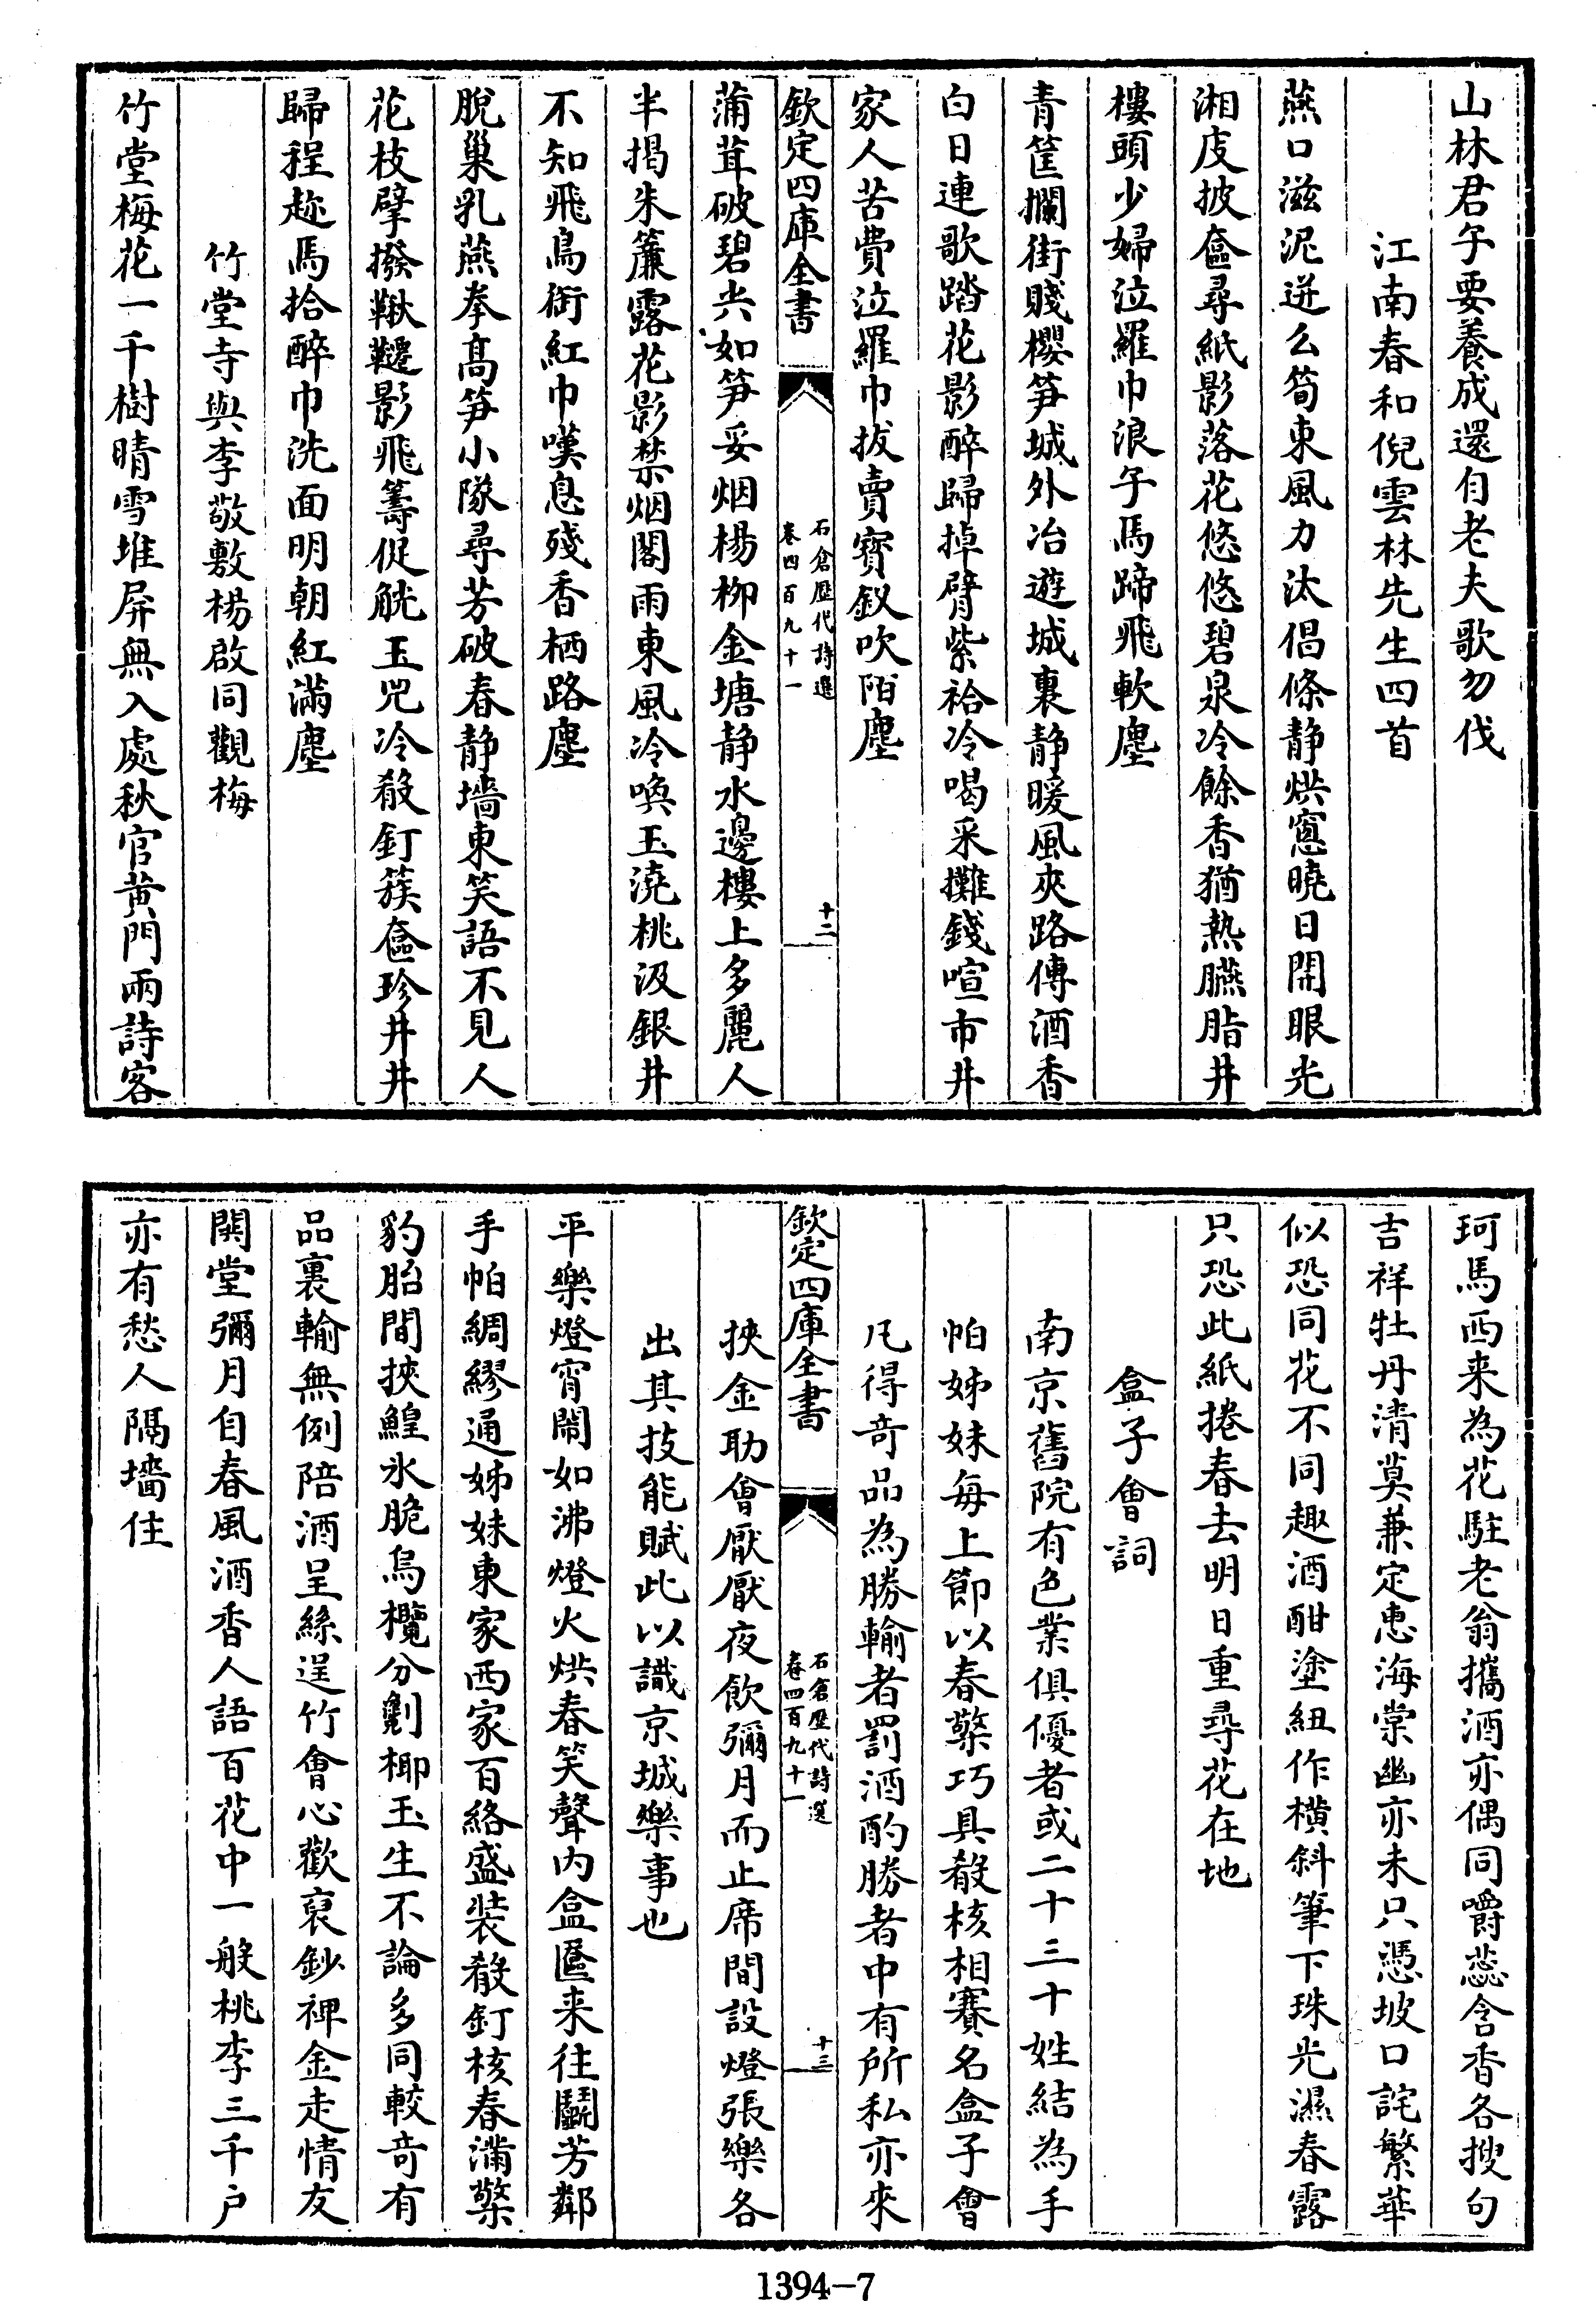 山林君子要養成還自老夫歌勿伐
江南春和倪雲林先生四首
燕口滋泥迸么筍東風力汰倡條静烘窻曉日開眼光
湘皮披奩尋紙影落花悠悠碧泉冷餘香猶熱臙脂井
樓頭少婦泣羅巾浪子馬蹄飛軟塵
青筐攔街賤櫻笋城外冶遊城裏静暖風夾路傳酒香
白日連歌踏花影醉歸掉臂紫袷冷喝采攤錢喧市井
家人苦費泣羅巾拔賣寳釵吹陌塵
欽定四庫全書
石倉歷代詩選
卷四百九十一
十二
蒲茸破碧尖如笋妥烟楊柳金塘静水邊樓上多麗人
半揭朱簾露花影禁烟閣雨東風冷喚玉澆桃汲銀井
不知飛鳥銜紅巾嘆息殘香栖路塵
脫巢乳燕拳高笋小隊尋芳破春静墻東笑語不見人
花枝擘撥鞦韆影飛籌促觥玉兕冷殽飣簇奩珍井井
歸程趂馬拾醉巾洗面明朝紅滿塵
竹堂寺與李敬敷楊啟同觀梅
竹堂梅花一千樹晴雪堆屏無入處秋官黃門兩詩客
珂馬西来為花駐老翁攜酒亦偶同嚼蕊含香各搜句
吉祥牡丹清莫兼定惠海棠幽亦未只憑坡口詫繁華
似恐同花不同趣酒酣塗紐作橫斜筆下珠光濕春露
只恐此紙捲春去明日重尋花在地
盒子會詞
南京舊院有色業俱優者或二十三十姓結為手
帕姊妹每上節以春檠巧具殽核相賽名盒子會
凡得奇品為勝輸者罰酒酌勝者中有所私亦來
欽定四庫全書
石倉歷代詩選
卷四百九十一
十三
挾金助會厭厭夜飲彌月而止席間設燈張樂各
出其技能賦此以識京城樂事也
平樂燈宵鬧如沸燈火烘春笑聲內盒匳来往鬭芳鄰
手帕綢繆通姊妹東家西家百絡盛装殽飣核春滿檠
豹胎間挾鰉氷脆烏欖分剿椰玉生不論多同較奇有
品裏輸無例陪酒呈絲逞竹會心歡裒鈔裨金走情友
関堂彌月自春風酒香人語百花中一般桃李三千户
亦有愁人隔墻住
1394-7